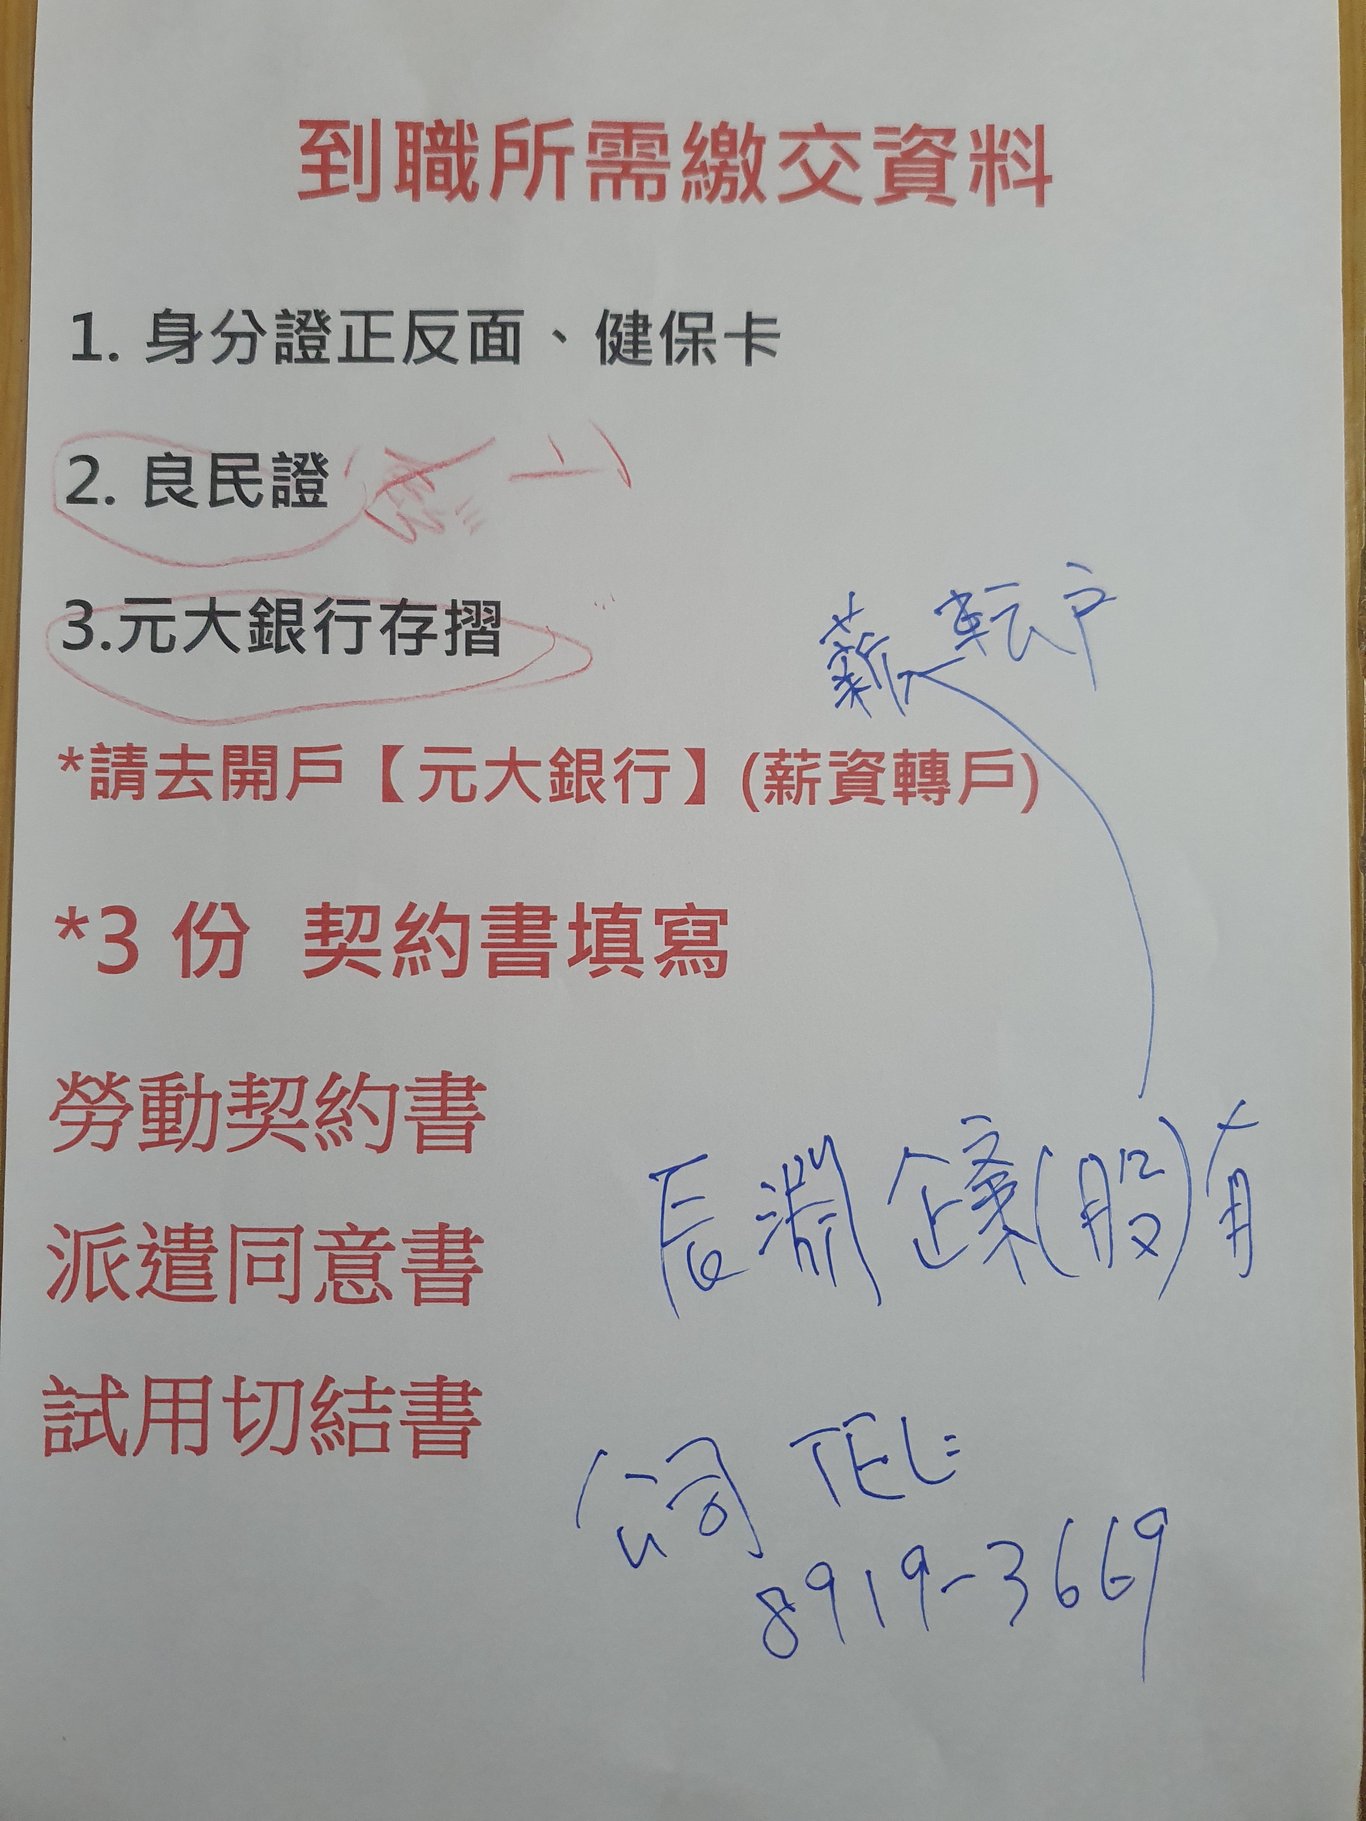 到職所需繳交資料
1. 身分證正反面、健保卡
2. 良民證
3.元大銀行存摺
薪轉戶
*請去開戶【元大銀行】(薪資轉戶)
*3 份 契約書填寫
勞動契約書
長淵企業(股)有
派遣同意書
試用切結書
公司 TEL:
8919-3669